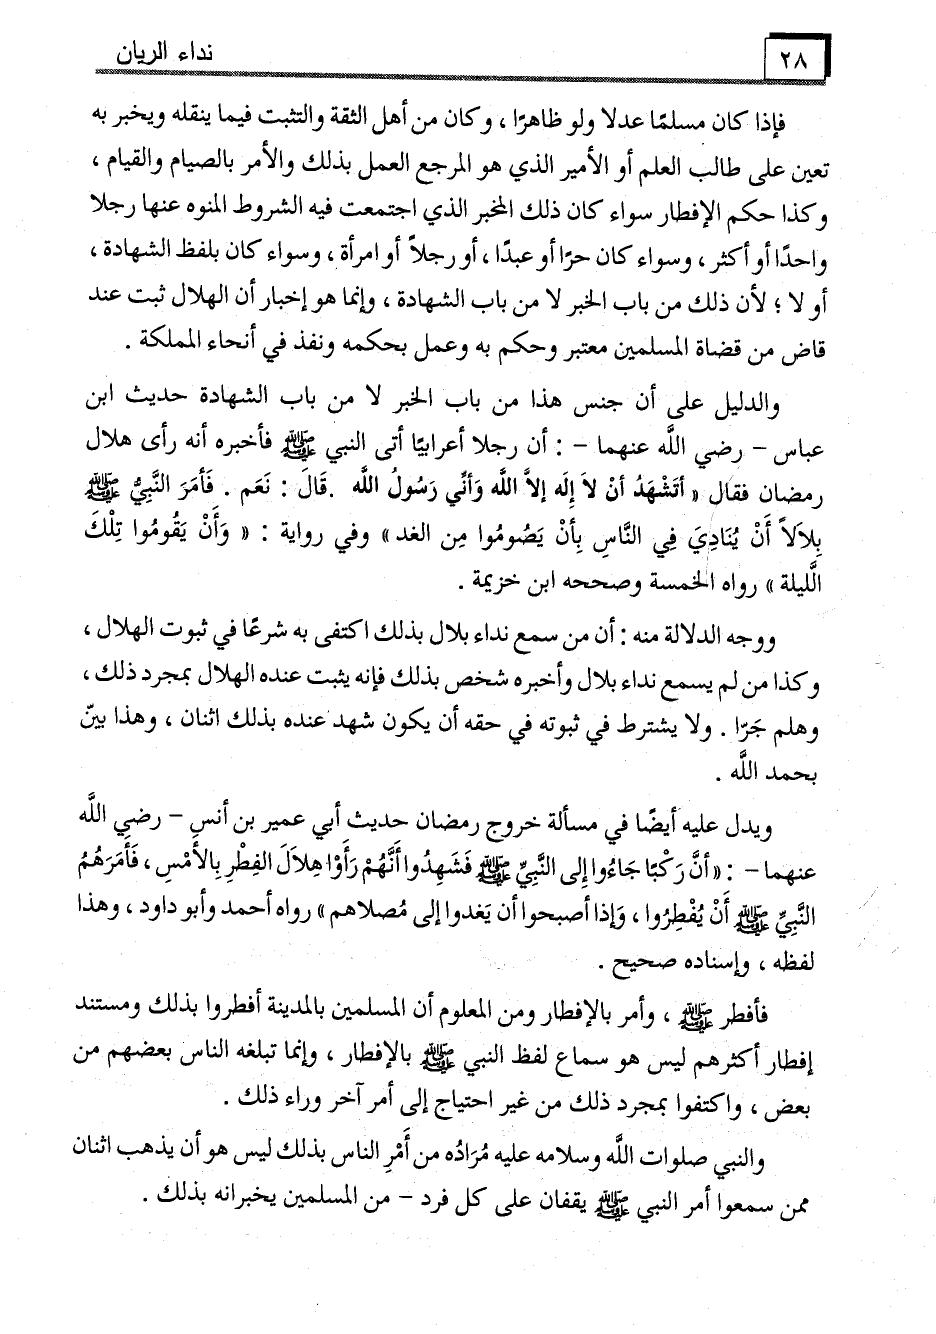 ٢٨
نداء الريان
فإذا كان مسلمًا عدلا ولو ظاهرًا ، وكان من أهل الثقة والتثبت فيما ينقله ويخبر به
تعين على طالب العلم أو الأمير الذي هو المرجع العمل بذلك والأمر بالصيام والقيام ،
وكذا حكم الإفطار سواء كان ذلك المخبر الذي اجتمعت فيه الشروط المنوه عنها رجلا
واحدًا أو أكثر ، وسواء كان حرًا أو عبدًا ، أو رجلاً أو امرأة ، وسواء كان بلفظ الشهادة ،
أو لا ؛ لأن ذلك من باب الخبر لا من باب الشهادة ، وإنما هو إخبار أن الهلال ثبت عند
قاض من قضاة المسلمين معتبر وحكم به وعمل بحكمه ونفذ في أنحاء المملكة .
والدليل على أن جنس هذا من باب الخبر لا من باب الشهادة حديث ابن
عباس – رضي اللَّه عنهما – : أن رجلا أعرابيًا أتى النبي ﷺ فأخبره أنه رأى هلال
رمضان فقال « أَتَشْهَدُ أنْ لاَ إلَه إلاَّ اللَّه وَأنِّي رَسُولُ اللَّه .قَالَ : نَعَم . فَأمَرَ النَّبِيُّ ﷺ
بِلاَلاً أَنْ يُنَادِيَ فِي النَّاسِ بِأنْ يَصُومُوا مِن الغد» وفي رواية : « وَأَنْ يَقُومُوا تِلْكَ
الَّليلة » رواه الخمسة وصححه ابن خزيمة .
ووجه الدلالة منه : أن من سمع نداء بلال بذلك اكتفى به شرعًا في ثبوت الهلال ،
وكذا من لم يسمع نداء بلال وأخبره شخص بذلك فإنه يثبت عنده الهلال بمجرد ذلك ،
وهلم جَرّا . ولا يشترط في ثبوته في حقه أن يكون شهد عنده بذلك اثنان ، وهذا بينّ
بحمد اللَّه .
ويدل عليه أيضًا في مسألة خروج رمضان حديث أبي عمير بن أنس – رضي اللَّه
عنهما – : «أنَّ رَكْبًا جَاءُوا إلى النَّبِيِّ ﷺ فَشَهِدُوا أَنَّهُمْ رَأَوْا هِلاَلَ الفِطْرِ بِالأَمْسِ ، فَأَمَرَهُمُ
النَّبِيِّ ﷺ أَنْ يُفْطِرُوا ، وَإذا أصبحوا أن يَغدوا إلى مُصلاهم» رواه أحمد وأبو داود ، وهذا
لفظه ، وإسناده صحيح .
فأفطر ﷺ ، وأمر بالإفطار ومن المعلوم أن المسلمين بالمدينة أفطروا بذلك ومستند
إفطار أكثرهم ليس هو سماع لفظ النبي ﷺ بالإفطار ، وإنما تبلغه الناس بعضهم من
بعض ، واكتفوا بمجرد ذلك من غير احتياج إلى أمر آخر وراء ذلك .
والنبي صلوات اللَّه وسلامه عليه مُرَادُه من أَمْرِ الناس بذلك ليس هو أن يذهب اثنان
ممن سمعوا أمر النبي ﷺ يقفان على كل فرد – من المسلمين يخبرانه بذلك .